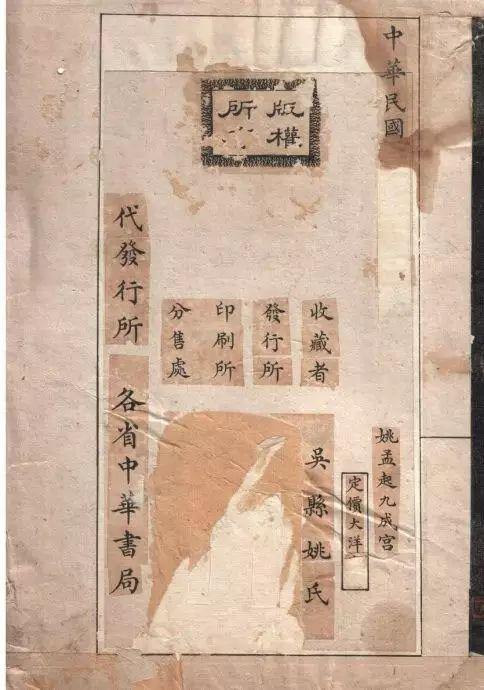 中華民國
版權
所
姚孟起九成宮
定價大洋
收藏者
吳縣姚氏
發行所
印刷所
分售處
代發行所
各省中華書局